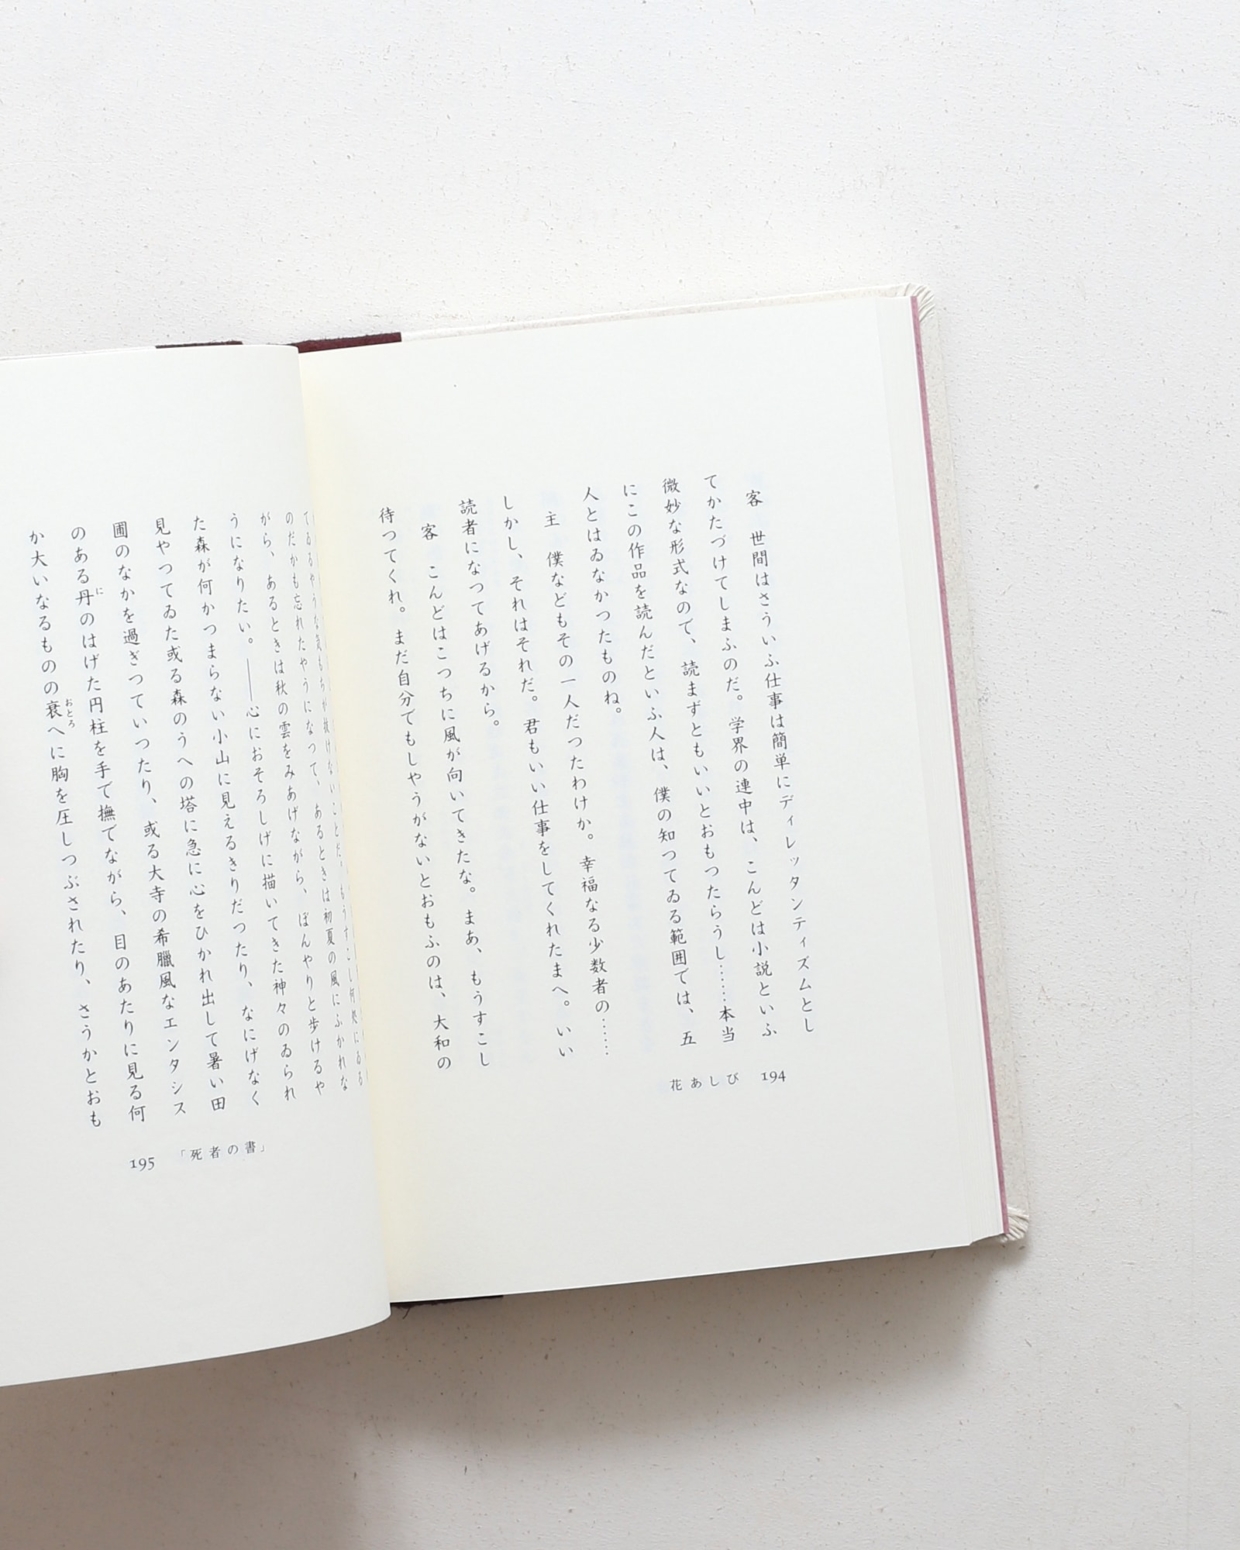 客　世間はさういふ仕事は簡単にディレッタンティズムとし
てかたづけてしまふのだ。学界の連中は、こんどは小説といふ
微妙な形式なので、読まずともいいとおもつたらうし……本当
にこの作品を読んだといふ人は、僕の知つてゐる範囲では、五
人とはゐなかつたものね。
主　僕などもその一人だつたわけか。幸福なる少数者の……
しかし、それはそれだ。君もいい仕事をしてくれたまへ。いい
読者になつてあげるから。
客　こんどはこつちに風が向いてきたな。まあ、もうすこし
待つてくれ。まだ自分でもしやうがないとおもふのは、大和の
花あしび　194
てゐるやうな気もちが抜けないことだ。もうすこし何処にゐる
のだかも忘れたやうになつて、あるときは初夏の風にふかれな
がら、あるときは秋の雲をみあげながら、ぼんやりと歩けるや
うになりたい。――心におそろしげに描いてきた神々のゐられ
た森が何かつまらない小山に見えるきりだつたり、なにげなく
見やつてゐた或る森のうへの塔に急に心をひかれ出して暑い田
圃のなかを過ぎつていつたり、或る大寺の希臘風なエンタシス
のある丹のはげた円柱を手で撫でながら、目のあたりに見る何
か大いなるものの衰へに胸を圧しつぶされたり、さうかとおも
195　「死者の書」